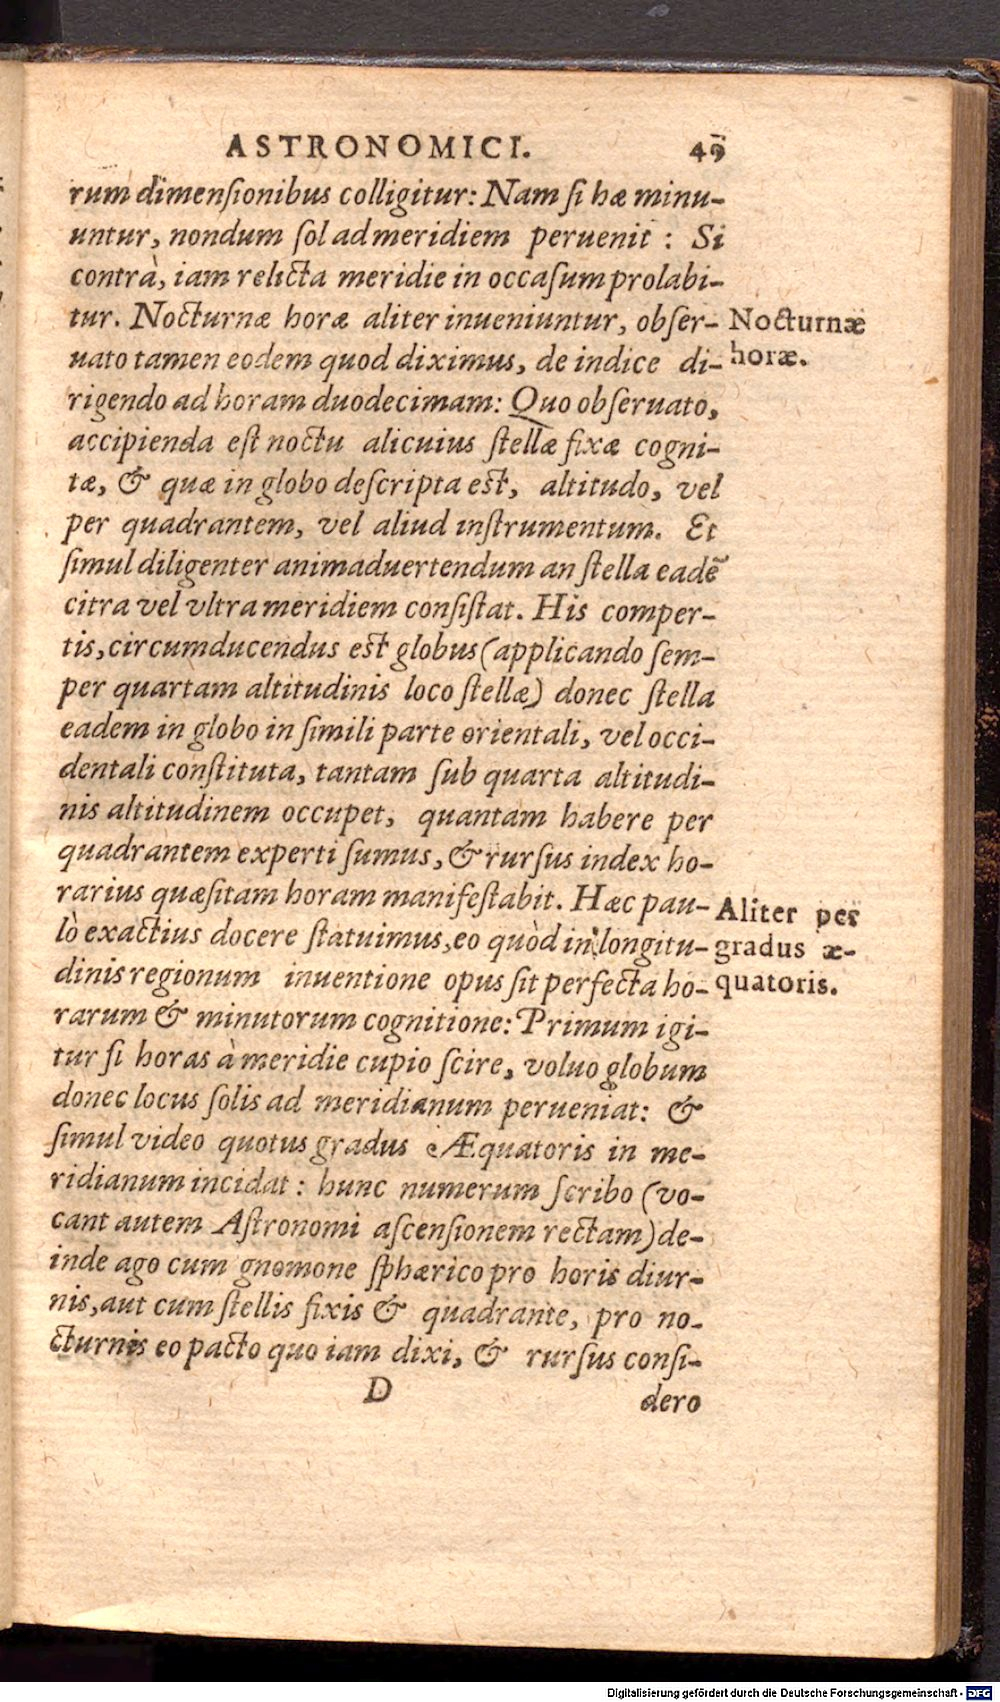 ASTRONOMICI. 49
rum dimenſionibus colligitur: Nam ſi hæ minu-
untur, nondum ſol ad meridiem peruenit : Si
contrà, iam relicta meridie in occaſum prolabi-
tur. Nocturnæ horæ aliter inueniuntur, obſer-
uato tamen eodem quod diximus, de indice di-
rigendo ad horam duodecimam: Quo obſeruato,
accipienda eſt noctu alicuius ſtellæ fixæ cogni-
tæ, & quæ in globo deſcripta eſt, altitudo, vel
per quadrantem, vel aliud inſtrumentum. Et
ſimul diligenter animaduertendum an ſtella eadẽ
citra vel vltra meridiem conſiſtat. His comper-
tis, circumducendus eſt globus (applicando ſem-
per quartam altitudinis loco ſtellæ) donec ſtella
eadem in globo in ſimili parte orientali, vel occi-
dentali conſtituta, tantam ſub quarta altitudi-
nis altitudinem occupet, quantam habere per
quadrantem experti ſumus, & rurſus index ho-
rarius quæſitam horam manifeſtabit. Hæc pau-
lò exactius docere ſtatuimus, eo quòd in longitu-
dinis regionum inuentione opus ſit perfecta ho-
rarum & minutorum cognitione: Primum igi-
tur ſi horas à meridie cupio ſcire, voluo globum
donec locus ſolis ad meridianum perueniat: &
ſimul video quotus gradus Æquatoris in me-
ridianum incidat : hunc numerum ſcribo (vo-
cant autem Aſtronomi aſcenſionem rectam) de-
inde ago cum gnomone ſphærico pro horis diur-
nis, aut cum ſtellis fixis & quadrante, pro no-
cturnis eo pacto quo iam dixi, & rurſus conſi-
D dero
Nocturnæ
horæ.
Aliter per
gradus æ-
quatoris.
Digitalisierung gefördert durch die Deutsche Forschungsgemeinschaft - DFG